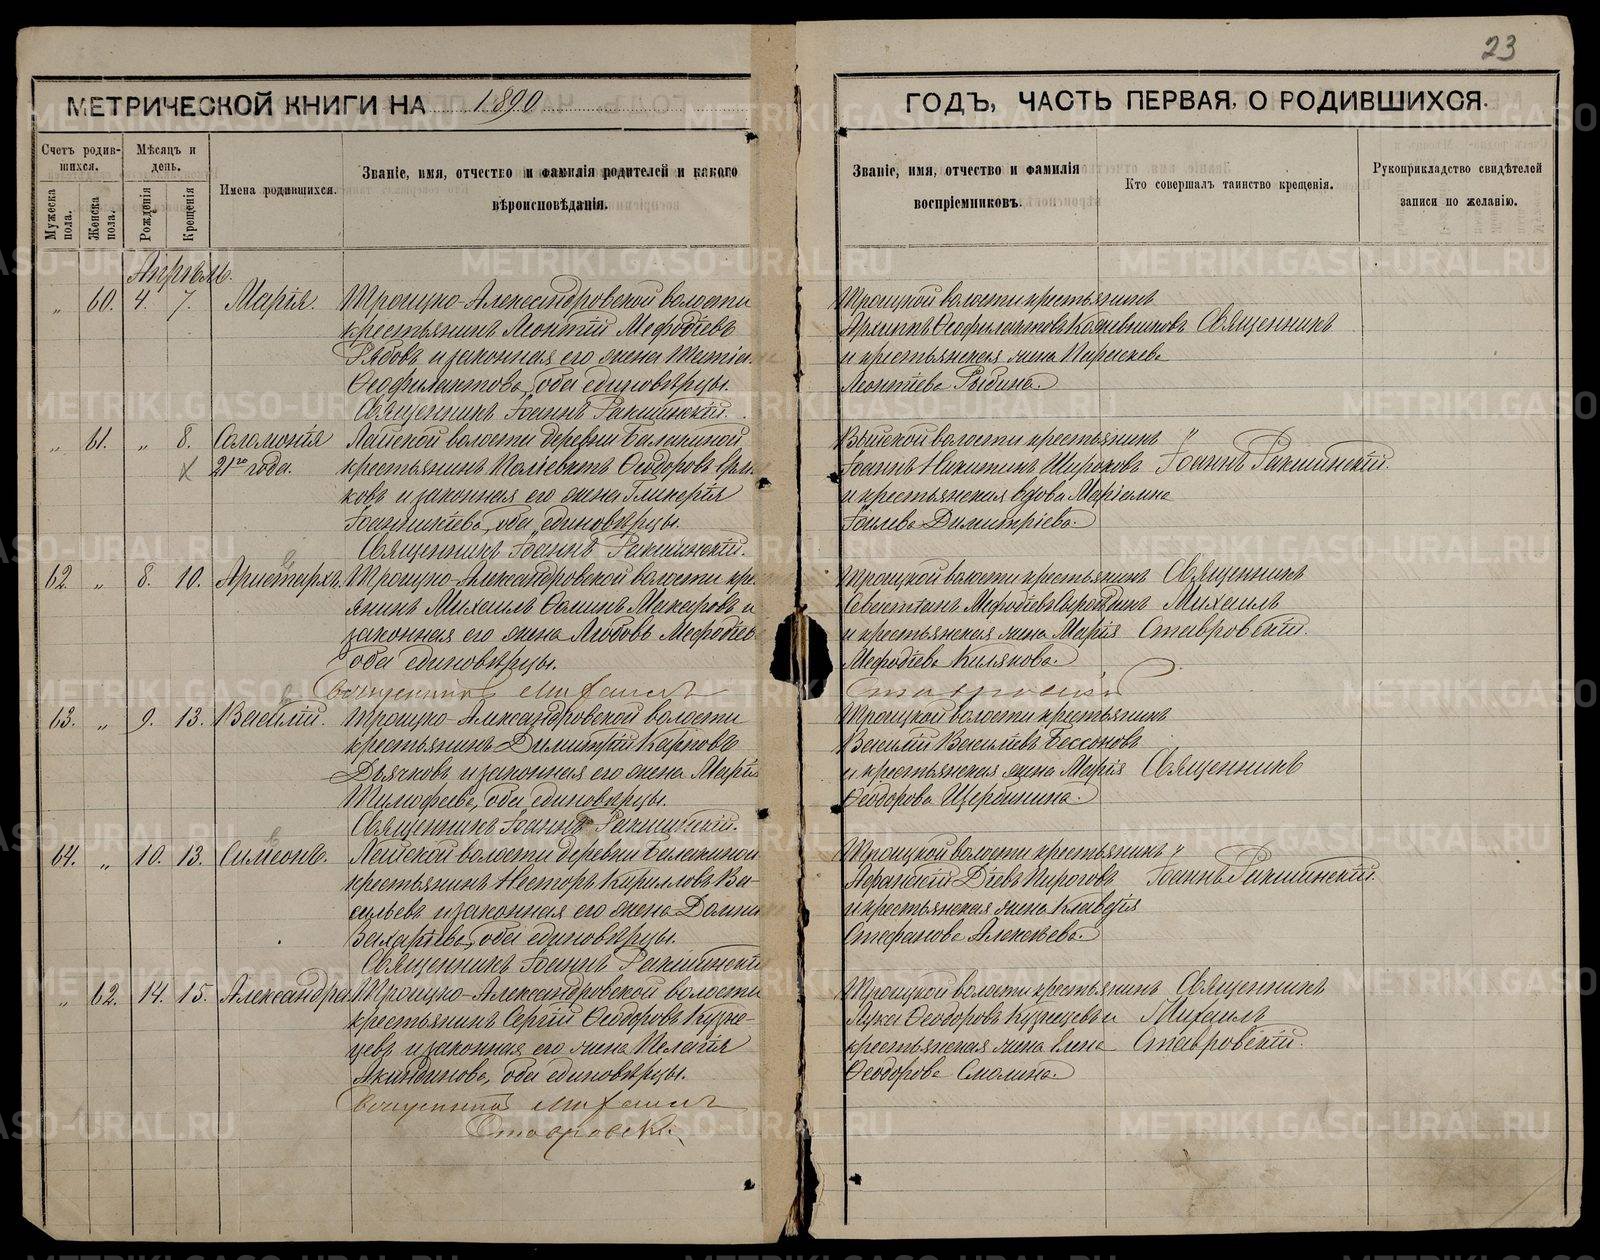 23
МЕТРИЧЕСКОЙ КНИГИ НА 1890 ГОДЪ, ЧАСТЬ ПЕРВАЯ, О РОДИВШИХСЯ.
Счетъ родив-
шихся.
Мужеска пола.
Женска пола.
Мѣсяцъ и
день.
Рожденія
Крещенія
Имена родившихся.
Званіе, имя, отчество и фамилія родителей и какого
вѣроисповѣданія.
Званіе, имя, отчество и фамилія
воспріемниковъ.
Кто совершалъ таинство крещенія.
Рукоприкладство свидѣтелей
записи по желанію.
Апрѣль.
„ 60. 4. 7. Марія.
Троицко-Александровской волости
крестьянинъ Леонтій Меѳодіевъ
Рябовъ и законная его жена
Ѳеофилактова, оба единовѣрцы.
Священникъ Іоаннъ Ракшинскій.
Троицкой волости крестьянинъ
Архиппъ Ѳеофилактовъ Кожевниковъ
и крестьянская жена Параскева
Леонтіева
Священникъ
„ 61. „ 8. Соломонія
21го года.
Лайской волости деревни Балакиной
крестьянинъ Ѳеодоровъ
ковъ и законная его жена Гликерія
оба единовѣрцы.
Священникъ Іоаннъ Ракшинскій.
Выйской волости крестьянинъ
Іоаннъ Никитинъ Широковъ
и крестьянская вдова Маріамна
Іоилева Димитріева.
Іоаннъ Ракшинскій.
62. „ 8. 10. Аристархъ.
Троицко-Александровской волости
янинъ Михаилъ Макаровъ и
законная его жена Любовь
оба единовѣрцы.
Священникъ Михаилъ Ставровскій
Троицкой волости крестьянинъ
Меѳодіевъ
и крестьянская жена Марія
Меѳодіева Килякова.
Священникъ
Михаилъ
Ставровскій.
63. „ 9. 13. Василій.
Троицко-Александровской волости
крестьянинъ Димитрій Карповъ
Дьячковъ и законная его жена Марія
Тимофеева, оба единовѣрцы.
Священникъ Іоаннъ Ракшинскій.
Троицкой волости крестьянинъ
Василій Васильевъ Бессоновъ
и крестьянская жена Марія
Ѳеодорова Щербинина.
Священникъ
64. „ 10. 13. Симеонъ.
Лайской волости деревни Балакиной
крестьянинъ Несторъ Кирилловъ Ва-
сильевъ и законная его жена
Захаріева, оба единовѣрцы.
Священникъ Іоаннъ Ракшинскій
Троицкой волости крестьянинъ
Аѳанасій Діевъ Пироговъ
и крестьянская жена Клавдія
Стефанова Алексѣева.
Іоаннъ Ракшинскій.
„ 62. 14. 15. Александра
Троицко-Александровской волости
крестьянинъ Сергій Ѳеодоровъ Кузне-
цевъ и законная его жена Пелагія
Акиндинова, оба единовѣрцы.
Священникъ Михаилъ
Ставровскій
Троицкой волости крестьянинъ
Лука Ѳеодоровъ Кузнецевъ и
крестьянская жена Елена
Ѳеодорова Смолина.
Священникъ
Михаилъ
Ставровскій.
METRIKI.GASO-URAL.RU